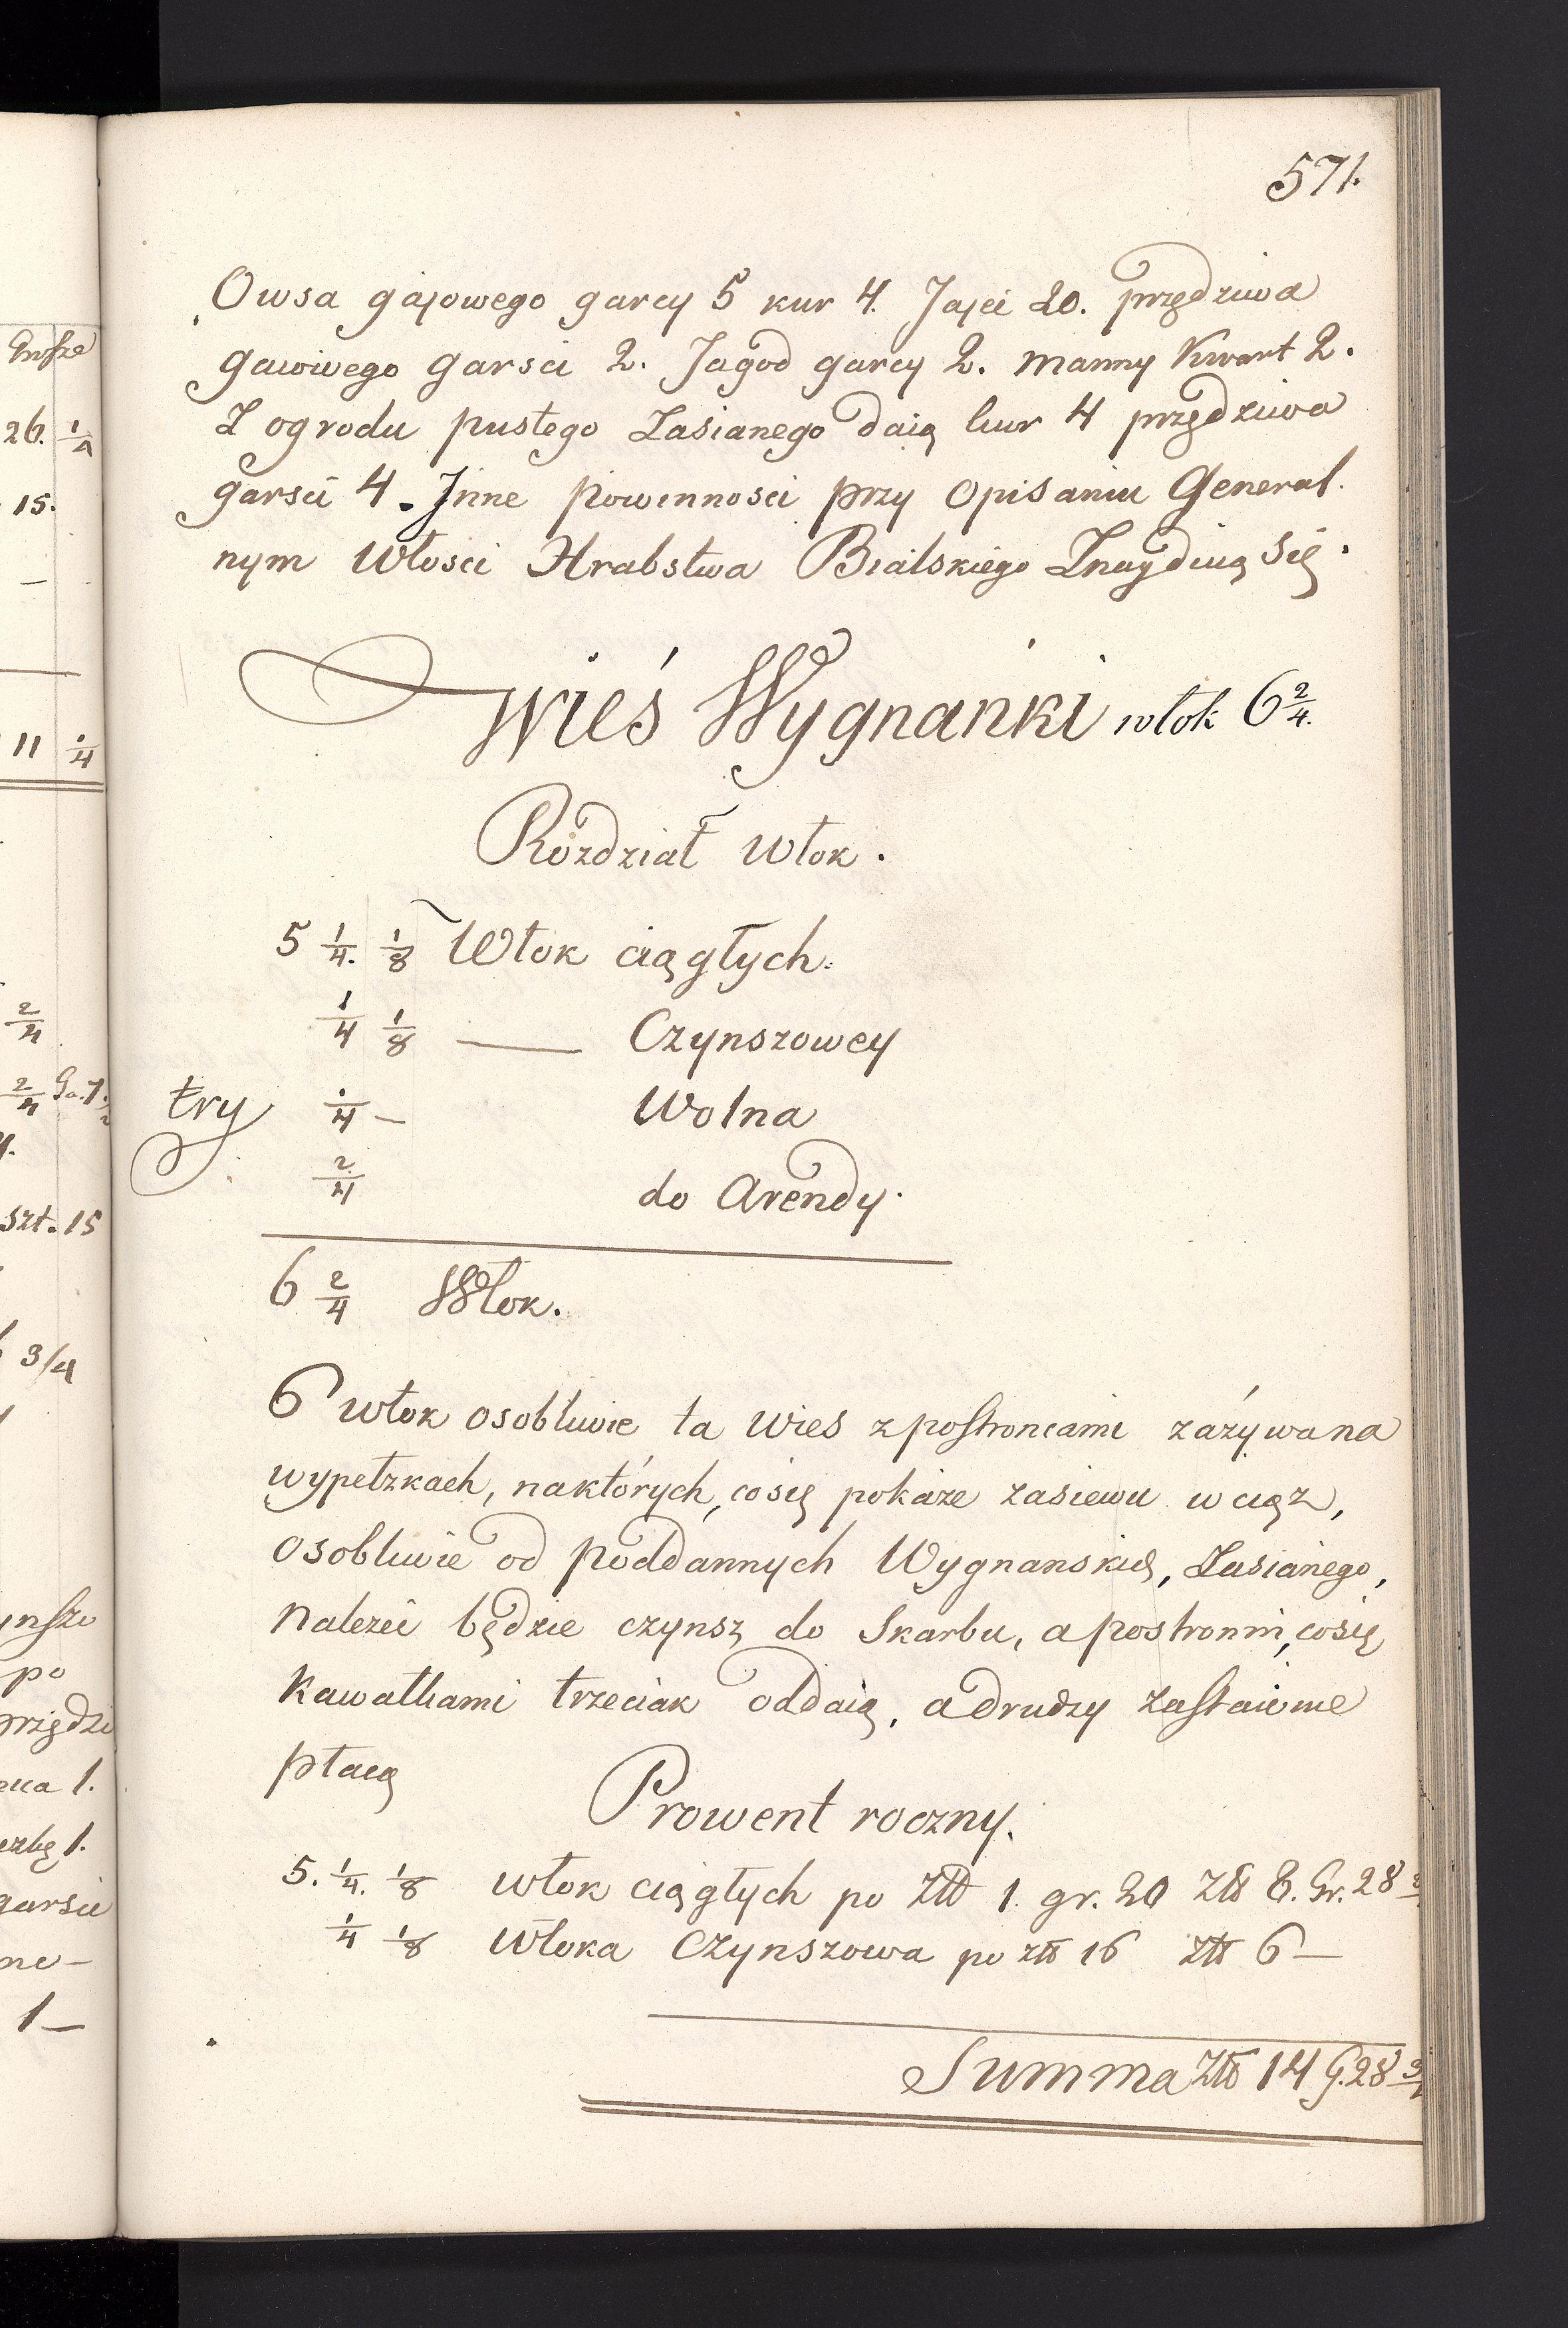 571.
Owsa gajowego garcy 5 kur 4. Jajci 20. przędziwa
gawivego garsci 2. Jagod garcy 2. manny Kwart 2.
Z ogrodu pustego Zasianego daią kur 4 przędziwa
garsci 4. Inne powinnosci przy Opisaniu General.
nym Włosci Hrabstwa Bialskiego Znaydują się.
Wieś Wygnanki włok 6 2/4.
Rozdział Włok.
5 1/4. 1/8 Włok ciągłych.
1/4 1/8 — Czynszowey
try ·/4 — Wolna
2/4 do Arendy.
6 2/4 Włok.
6 włok osobluwie ta wies z postroncami zażywa na
wypełzkach, naktórych, cosię pokaże zasiewu wciąż,
osobliwie od poddannych Wygnanskich, Zasianego,
Nalezeć będzie czynsz do Skarbu, a postronni, cosię
Kawałkami trzeciak oddaią, a drudzy
płacą
Prowent roczny.
5. 1/4. 1/8 włok ciągłych po Złł 1. gr. 20 Złł 8. Gr. 28
1/4 1/8 Włoka Czynszowa po złł 16 złł 6 —
Summa Złł 14 G. 28
Grosze
26. 1/4
15.
—
11 ·/4
2/4
2/4
szt. 15
3/4
po
1.
1.
garsci
1 —